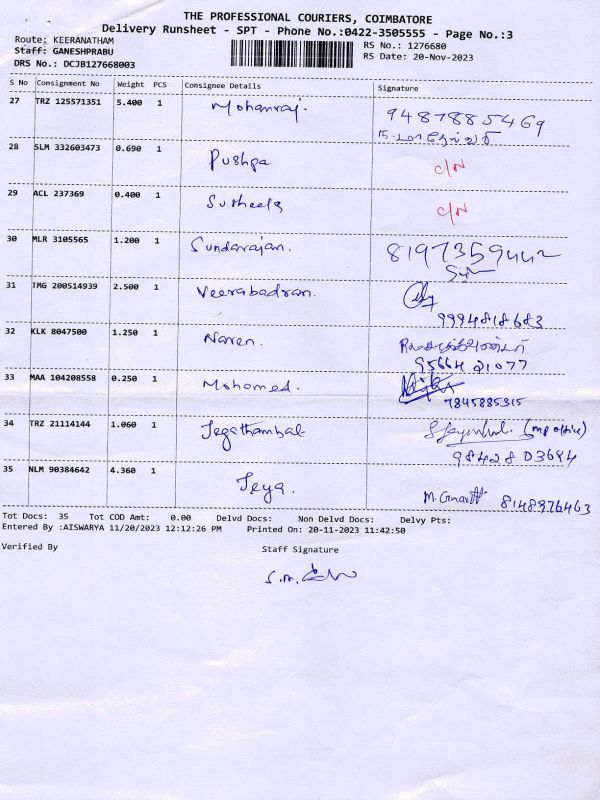 THE PROFESSIONAL COURIERS, COIMBATORE
Delivery Runsheet - SPT - Phone No.:0422-3505555 - Page No.:3
Route: KEERANATHAM
RS No.: 1276680
Staff: GANESHPRABU
RS Date: 20-Nov-2023
DRS No.: DCJB127668003
S No Consignment No Weight PCS Consignee Details Signature
27 TRZ 125571351 5.400 1 Mohanraj. 9487885469
28 SLM 332603473 0.690 1 Pushpa C/N
29 ACL 237369 0.400 1 Susheela C/N
30 MLR 3105565 1.200 1 Sundarajan.
31 TMG 200514939 2.500 1 Veerabadran.
9994818683
32 KLK 8047500 1.250 1 Naren.
95664 21077
33 MAA 104208558 0.250 1 Mohamed.
7845885315
34 TRZ 21114144 1.060 1 Jegathambal
98428 03694
35 NLM 90384642 4.360 1 Jeya. 8148976463
Tot Docs: 35 Tot COD Amt: 0.00 Delvd Docs: Non Delvd Docs: Delvy Pts:
Entered By :AISWARYA 11/20/2023 12:12:26 PM Printed On: 20-11-2023 11:42:50
Verified By Staff Signature